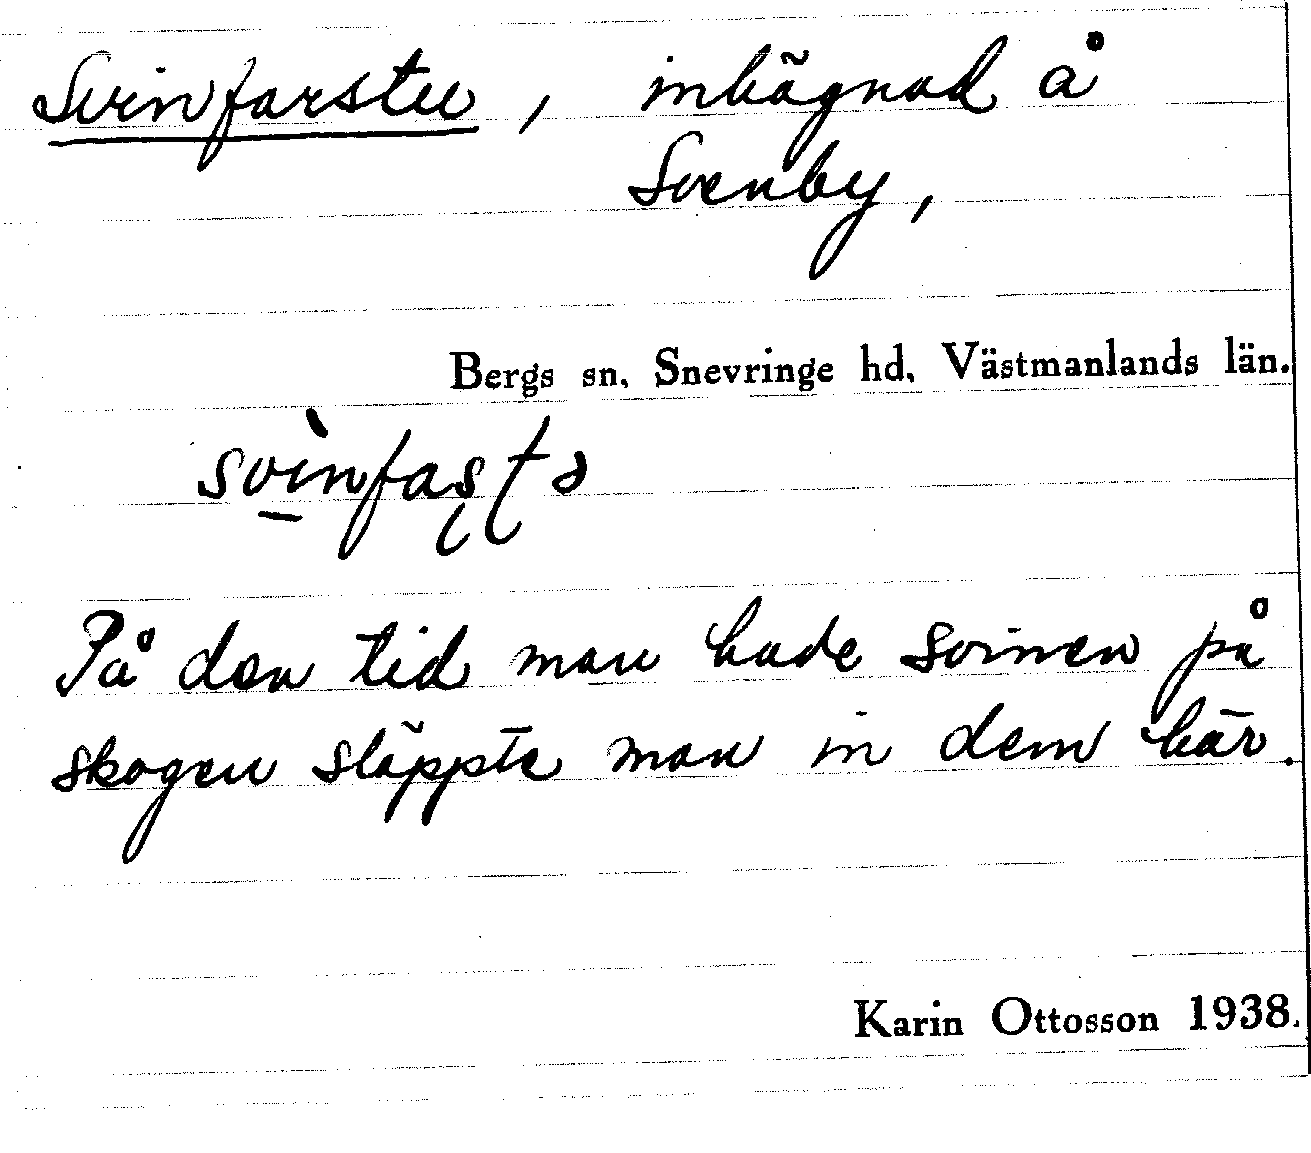 Svinfarstu, inhägnad å
Svenby,
Bergs sn. Snevringe hd. Västmanlands län.
På den tid man hade svinen på
skogen släppte man in dem här.
Karin Ottosson 1938.